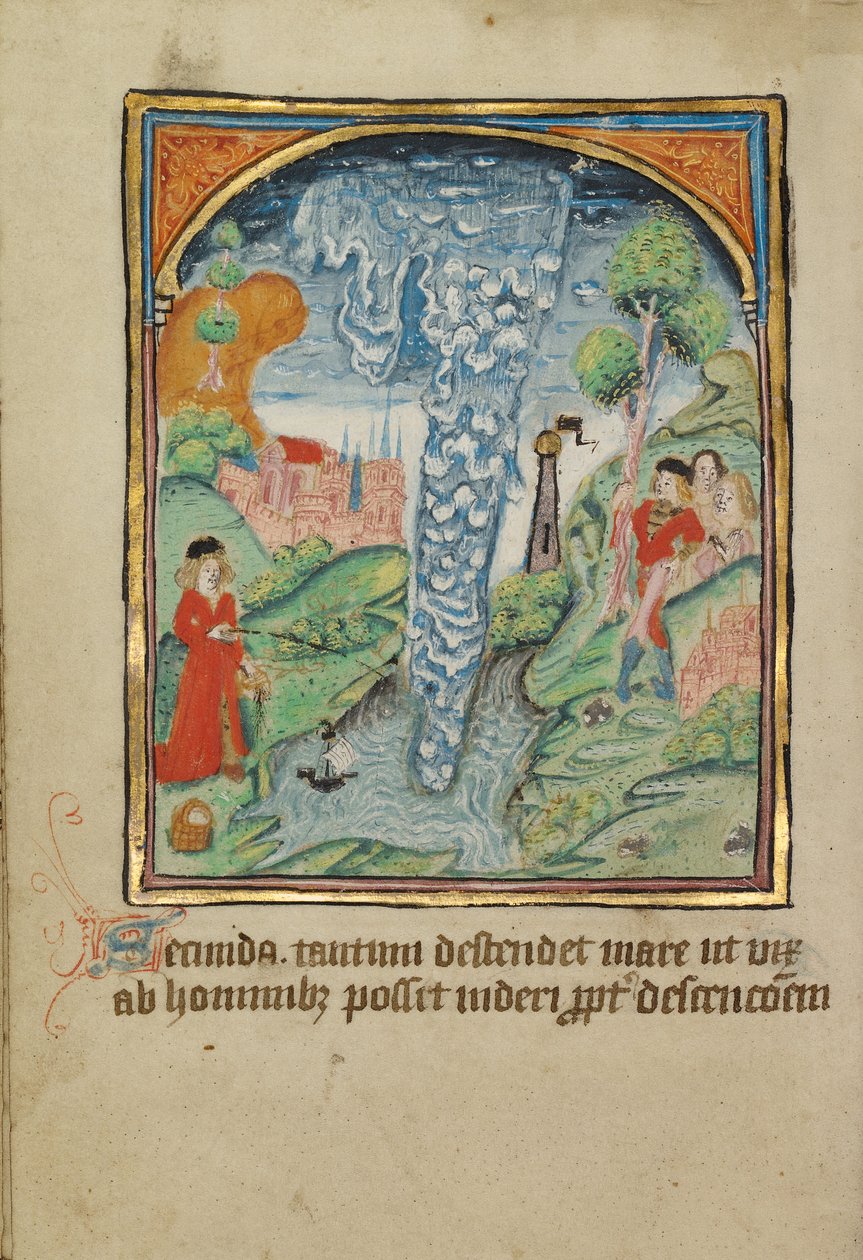 Secunda. tantum descendet mare ut vix
ab hominibꝫ possit uideri ꝓpt᾽ descencōem